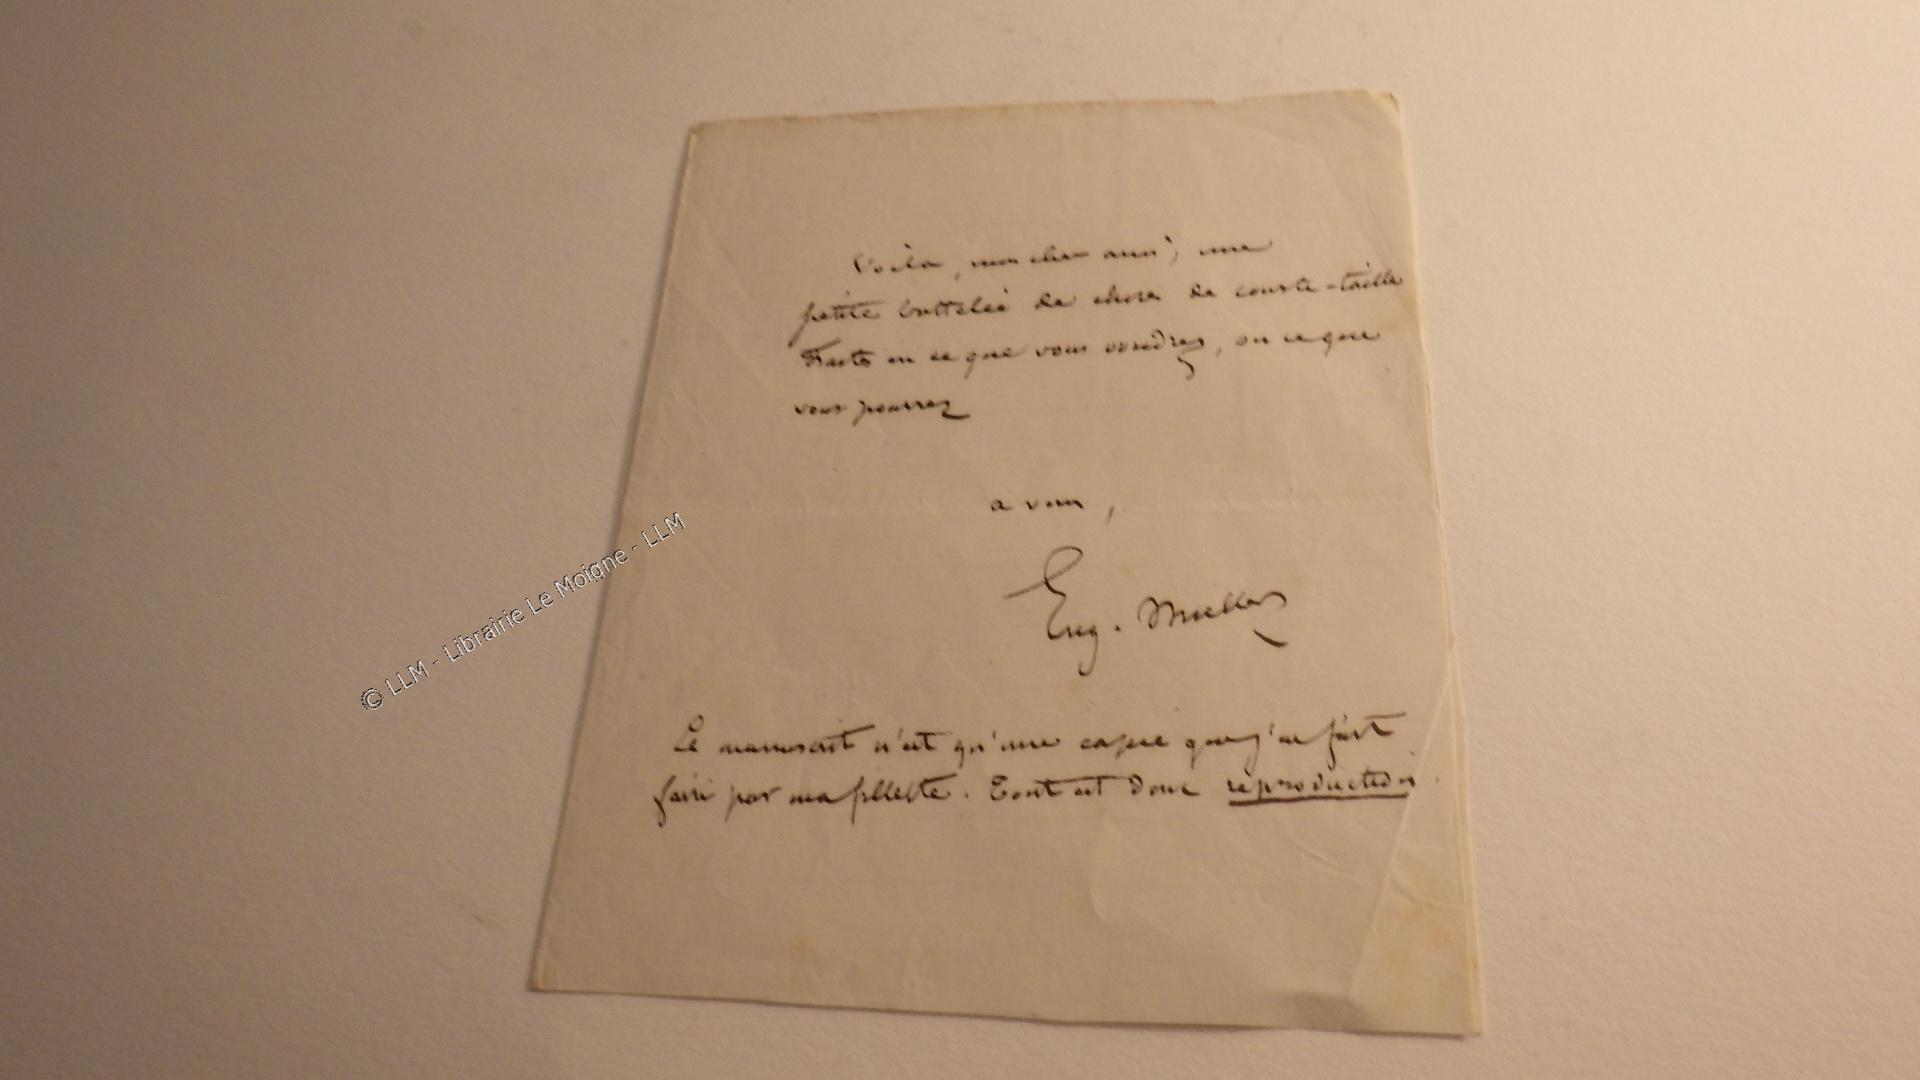 Voilà, mon cher ami, une
petite de choses de courte-taille
Faites en ce que vous voudrez, ou ce que
vous pourrez
a vous,
Eug. Muller
Le manuscrit n'est qu'une copie que j'ai fait
faire par ma fillette. Tout est donc reproduction.
© LLM - Librairie Le Moigne - LLM